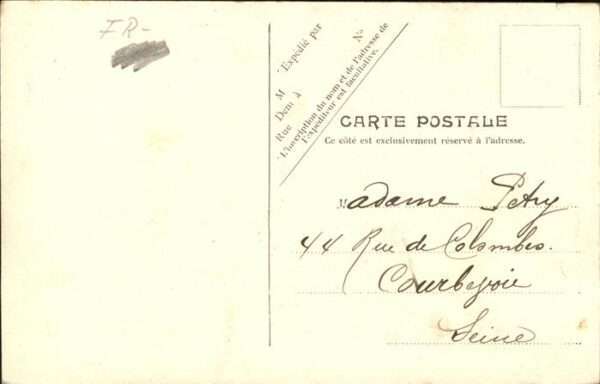 FR-
Expédié par
M
Dem^t à
Rue
N°
L'inscription du nom et de l'adresse de
l'expéditeur est facultative.
CARTE POSTALE
Ce côté est exclusivement réservé à l'adresse.
Madame Petry
44 Rue de Colombes.
Courbevoie
Seine